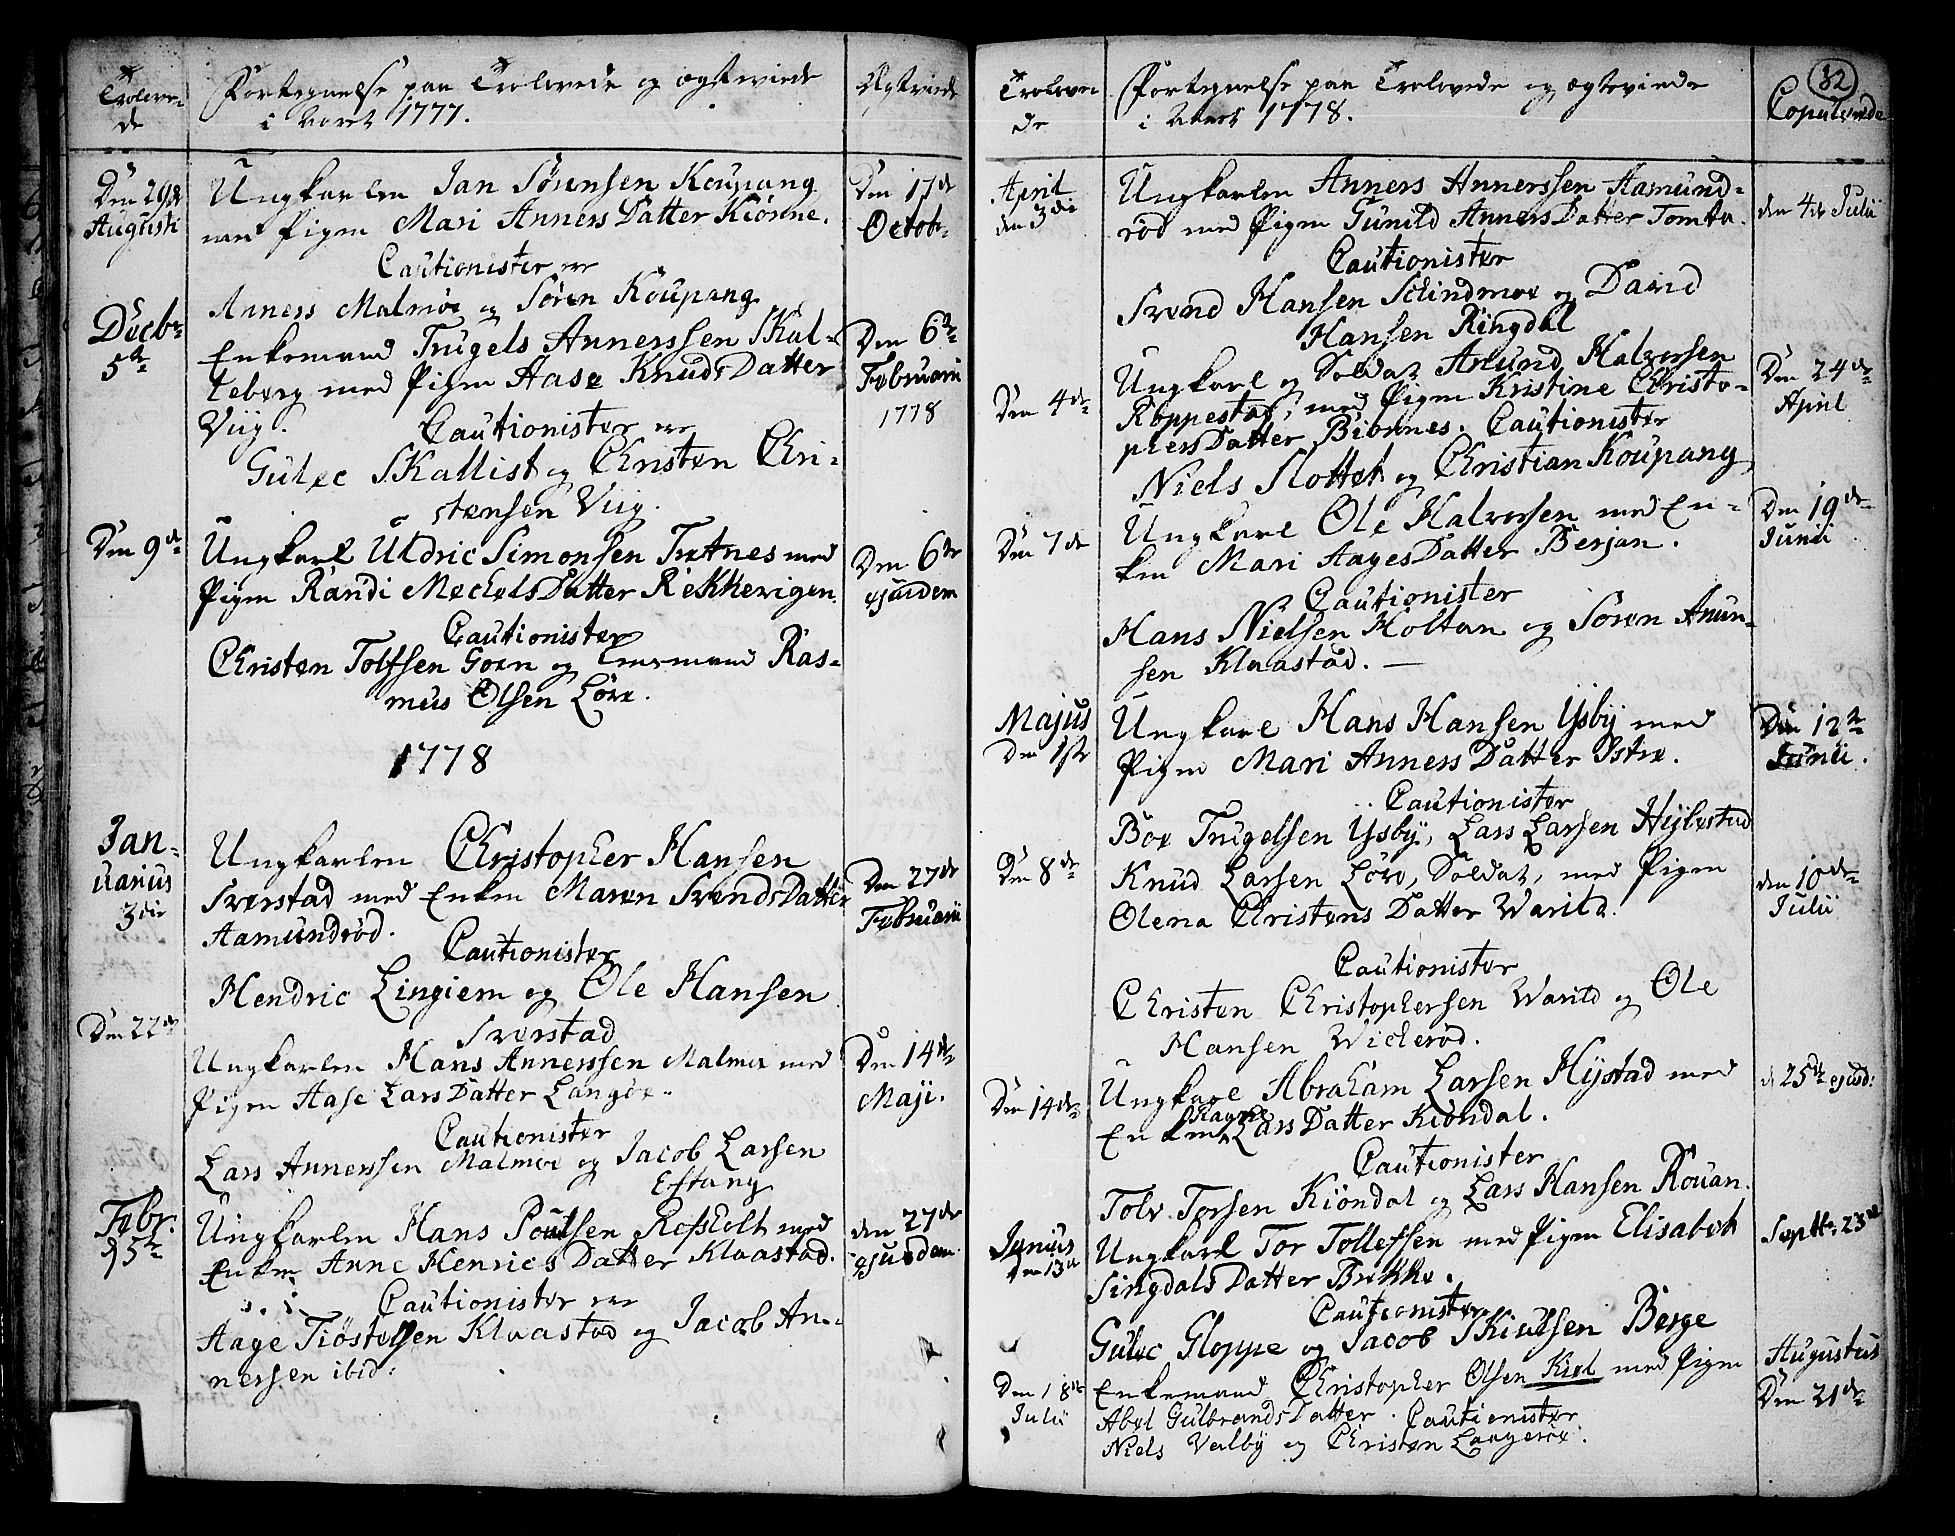 Trolove-
de
Fortegnelse paa Trolovede og ægteviede
i Aaret 1777.
Ægtviede
Den 29de
Augusti
Ungkarlen Jan Sørensen Koupang
med Pigen Mari AnnersDatter Kiønne.
Cautionister ere
Anners Malmøe og Søren Koupang
Den 17de
Octobr.
Decbr.
5te
Enkemand Trugels Annerssen Skal-
leberg med Pigen Aase KnudsDatter
Viig.
Cautionister ere
Gulec Skallist og Christen Chri-
stensen Viig.
Den 6te
Februarii
1778
Den 9de
Ungkarl Uldric Simonsen Træтnes med
Pigen Randi MechelsDatter Rekkevigen.
Cautionister
Christen Tolfsen Goen og Ras-
mus Olsen Løve.
Den 6te
ejusdem
1778
Jan-
uarius
3die
Ungkarlen Christopher Hansen
Sverstad med Enken Maren SvendsDatter
Aamundrød.
Cautionister
Hendric Lingiem og Ole Hansen
Sverstad
Den 27de
Februarii
Den 22de
Ungkarlen Hans Annerssen Malmøe med
Pigen Aase LarsDatter Langøe.
Cautionister
Lars Annerssen Malmøe og Jacob Larsen
Eftang
Den 14de
Maji.
Febr.
Ungkarlen Hans Poulsen Ressholt med
Enken Anne HenricsDatter Klaastad.
Cautionister ere
Aage Tiøstelsen Klaastad og Jacob An-
nerssen ibid:
den 27de
ejusdem.
32
Trolove-
de
Fortegnelse paa Trolovede og ægteviede
i Aaret 1778.
Copulerede
April
den 3die
Ungkarlen Anners Annerssen Aamund-
rød med Pigen Gunild AnnersDatter Tomta.
Cautionister
Svend Hansen Schindmoe og David
Hansen Ringdal
den 4de Julii
Den 4de
Ungkarl og Soldat Amund Halvorsen
Roppestad, med Pigen Kristine Christo-
phersDatter Biønnes. Cautionister
Niels Slottet og Christian Koupang
Den 24de
April
Den 7de
Ungkarl Ole Halvorsen med En-
ken Mari AagesDatter Berjan.
Cautionister
Hans Nielsen Holtan og Søren Amun-
sen Klaastad. —
Den 19de
Junii
Majus
Den 1ste
Ungkarl Hans Hansen Ysby med
Pigen Mari AnnersDatter Østre.
Cautionister
Boe Trugelsen Ysby, Lars Larsen Hybestad
Den 12te
Junii.
Den 8de
Knud Larsen Løve, Soldat, med Pigen
Olena ChristensDatter Warild.
Cautionister
Christen Christophersen Warild og Ole
Hansen Wicherød.
den 10de
Julii
Den 14de
Ungkarl Abraham Larsen Hystad med
Enken Ragne LarsDatter Kiøndal.
Cautionister
Tolv Torsen Kiøndal og Lars Hansen Rouan.
d 25de ejusd:
Junius
den 13de
Ungkarl Tor Tollefsen med Pigen Elisabeth
SingdalsDatter Brekke.
Cautionister
Gulec Gloppe og Jacob Skiulsen Berge
Septbr. 23de
Den 18de
Julii
Enkemand Christopher Olsen Kiel med Pigen
Abel GulbrandsDatter. Cautionister
Niels Valby og Christen Langerøe.
Augustus
Den 21de